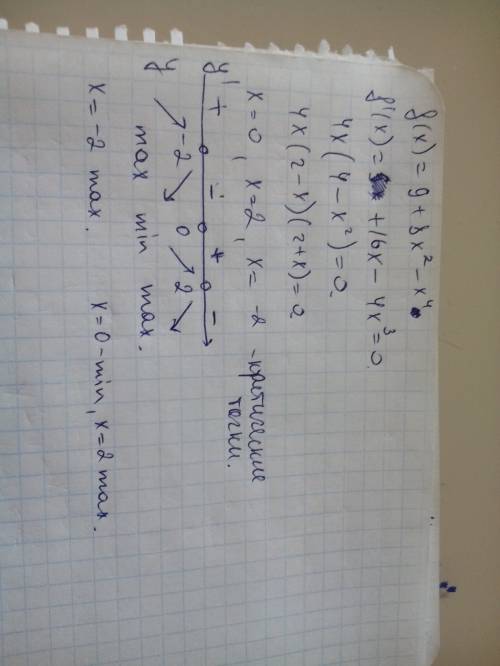 f(x) = 9 + 8x² - x⁴
f'(x) = + 16x - 4x³ = 0.
4x(4 - x²) = 0.
4x(2 - x)(2 + x) = 0
x = 0, x = 2, x = -2 - критические
точки.
y' + - + -
y ↗ -2 ↘ 0 ↗ 2 ↘
max min max.
x = -2 max. x = 0 - min, x = 2 max.